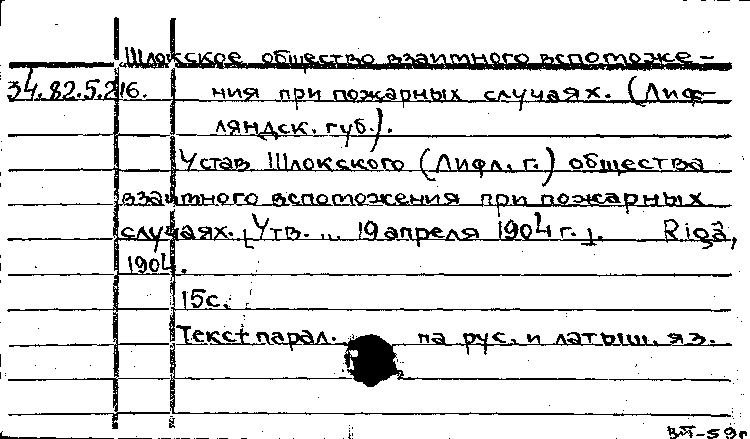 Шлокское общество взаимного вспоможе-
34.82.5.216. ния при пожарных случаях. (Лиф-
ляндск. губ.).
Устав Шлокского (Лифл. г.) общества
взаимного вспоможения при пожарных
случаях. [Утв. ... 19 апреля 1904 г.]. Rīgā,
1904.
15с.
Текст парал. на рус. и латыш. яз.